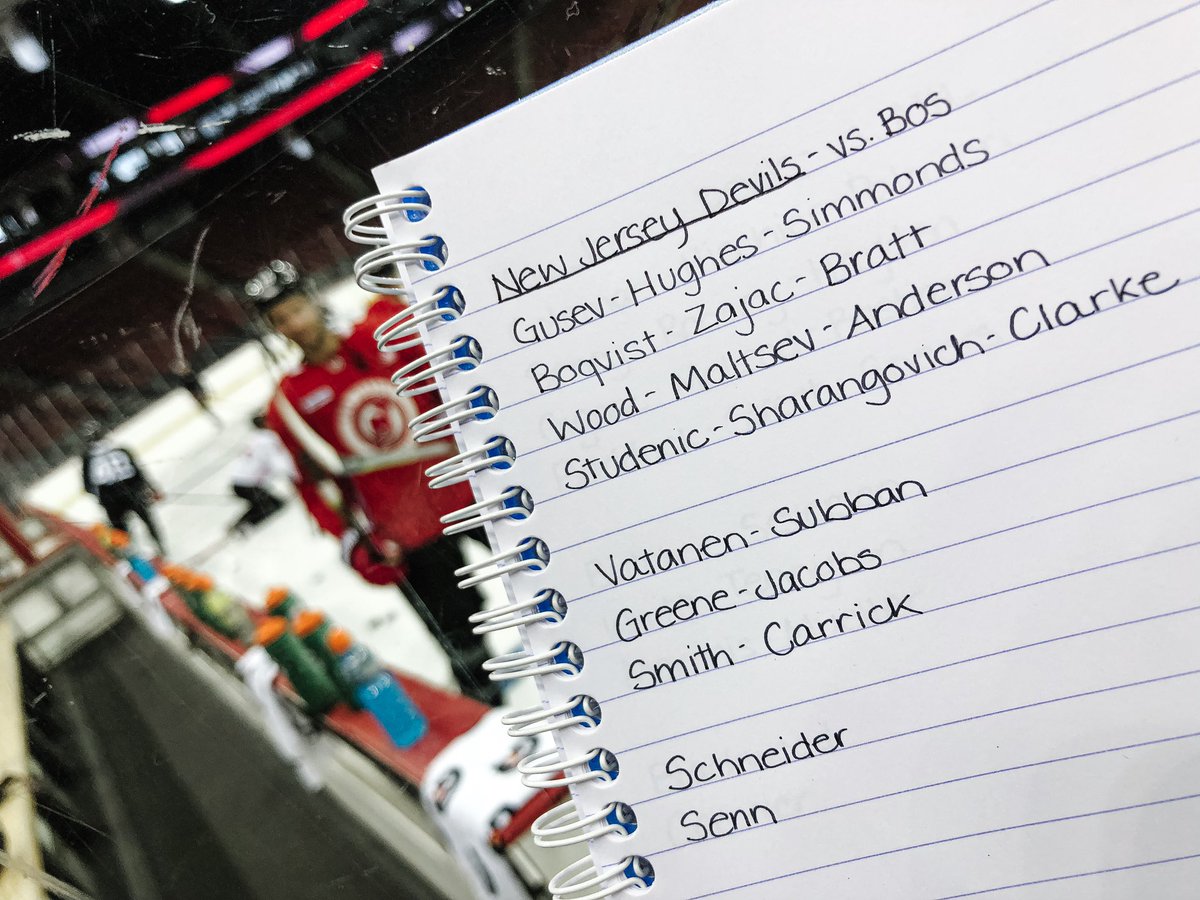 New Jersey Devils - vs. BOS
Gusev - Hughes - Simmonds
Boqvist - Zajac - Bratt
Wood - Maltsev - Anderson
Studenic - Sharangovich - Clarke
Vatanen - Subban
Greene - Jacobs
Smith - Carrick
Schneider
Senn